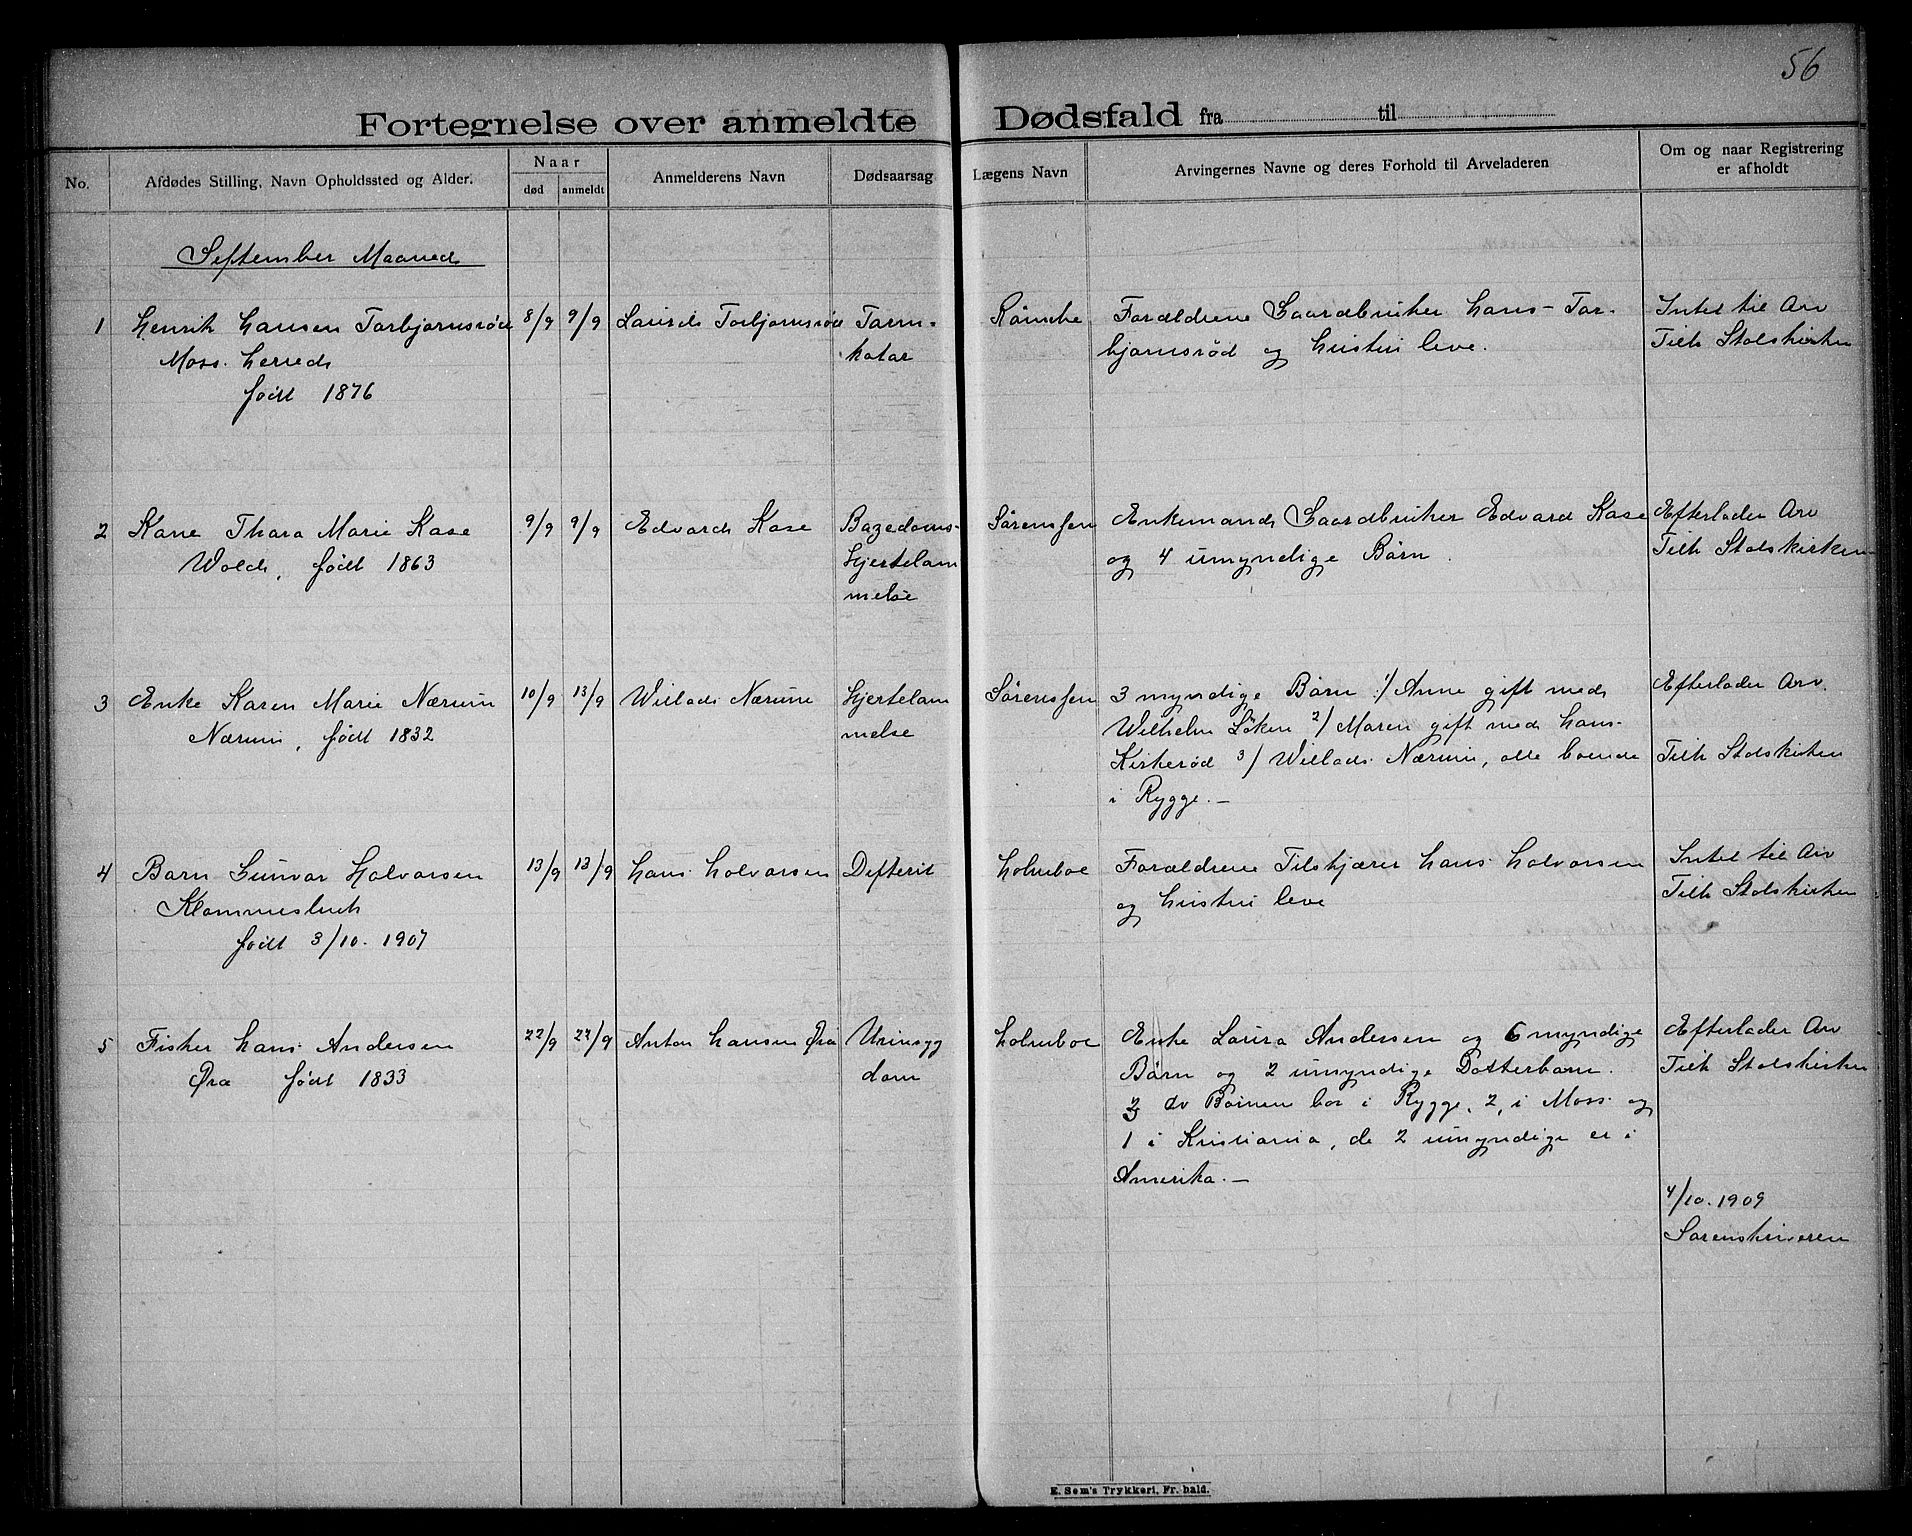 56
Fortegnelse over anmeldte Dødsfald fra til
No.
Afdødes Stilling, Navn Opholdssted og Alder.
Naar
død anmeldt
Anmelderens Navn
Dødsaarsag
Lægens Navn
Arvingernes Navne og deres Forhold til Arveladeren
Om og naar Registrering
er afholdt
September Maaned
1 Henrik Hansen Torbjørnsrød
Moss. Herred
født 1876
8/9 9/9
Laurds Torbjørnsrød
Tarm-
katar
Forældrene Gaardbruker Hans Tor-
bjørnsrød og Hustru leve.
Intet til Arv
Tilh Stolskirken
2 Kone Thora Marie Kase
Wold, født 1863
9/9 9/9
Edvard Kase
Bazedoms-
Hjertelam
melse
Sørenssen
Enkemand Gaardbruker Edvard Kase
og 4 umyndige Børn.
Efterlader Arv
Tilh Stolskirken
3 Enke Karen Marie Nærum
Nærum, født 1832
10/9 13/9
Willads Nærum
Hjertelam
melse
Sørenssen
3 myndige Børn 1/ Anne gift med
Wilhelm Løken 2/ Maren gift med Hans
Kirkerød 3/ Willads Nærum, alle boende
i Rygge.—
Efterlader Arv.
Tilh Stolskirken
4 Barn Gunvor Halvorsen
født 3/10. 1907
13/9 13/9
Hans Halvorsen
Defterit
Holmboe
Forældrene Tilskjærer Hans Halvorsen
og Hustru leve
Intet til Arv
Tilh Stolskirken
5 Fisker Hans Andersen
Øra født 1833
22/9 27/9
Anton Hansen Øra
Urinsyg
dom
Holmboe
Enke Laura Andersen og 6 myndige
Børn og 2 umyndige Datterbarn.
3 av Børnene bor i Rygge, 2, i Moss og
1 i Kristiania, de 2 umyndige er i
Amerika.—
Efterlader Arv
Tilh Stolskirken
4/10. 1909
Sorenskriveren
E. Sem's Trykkeri, Fr. hald.